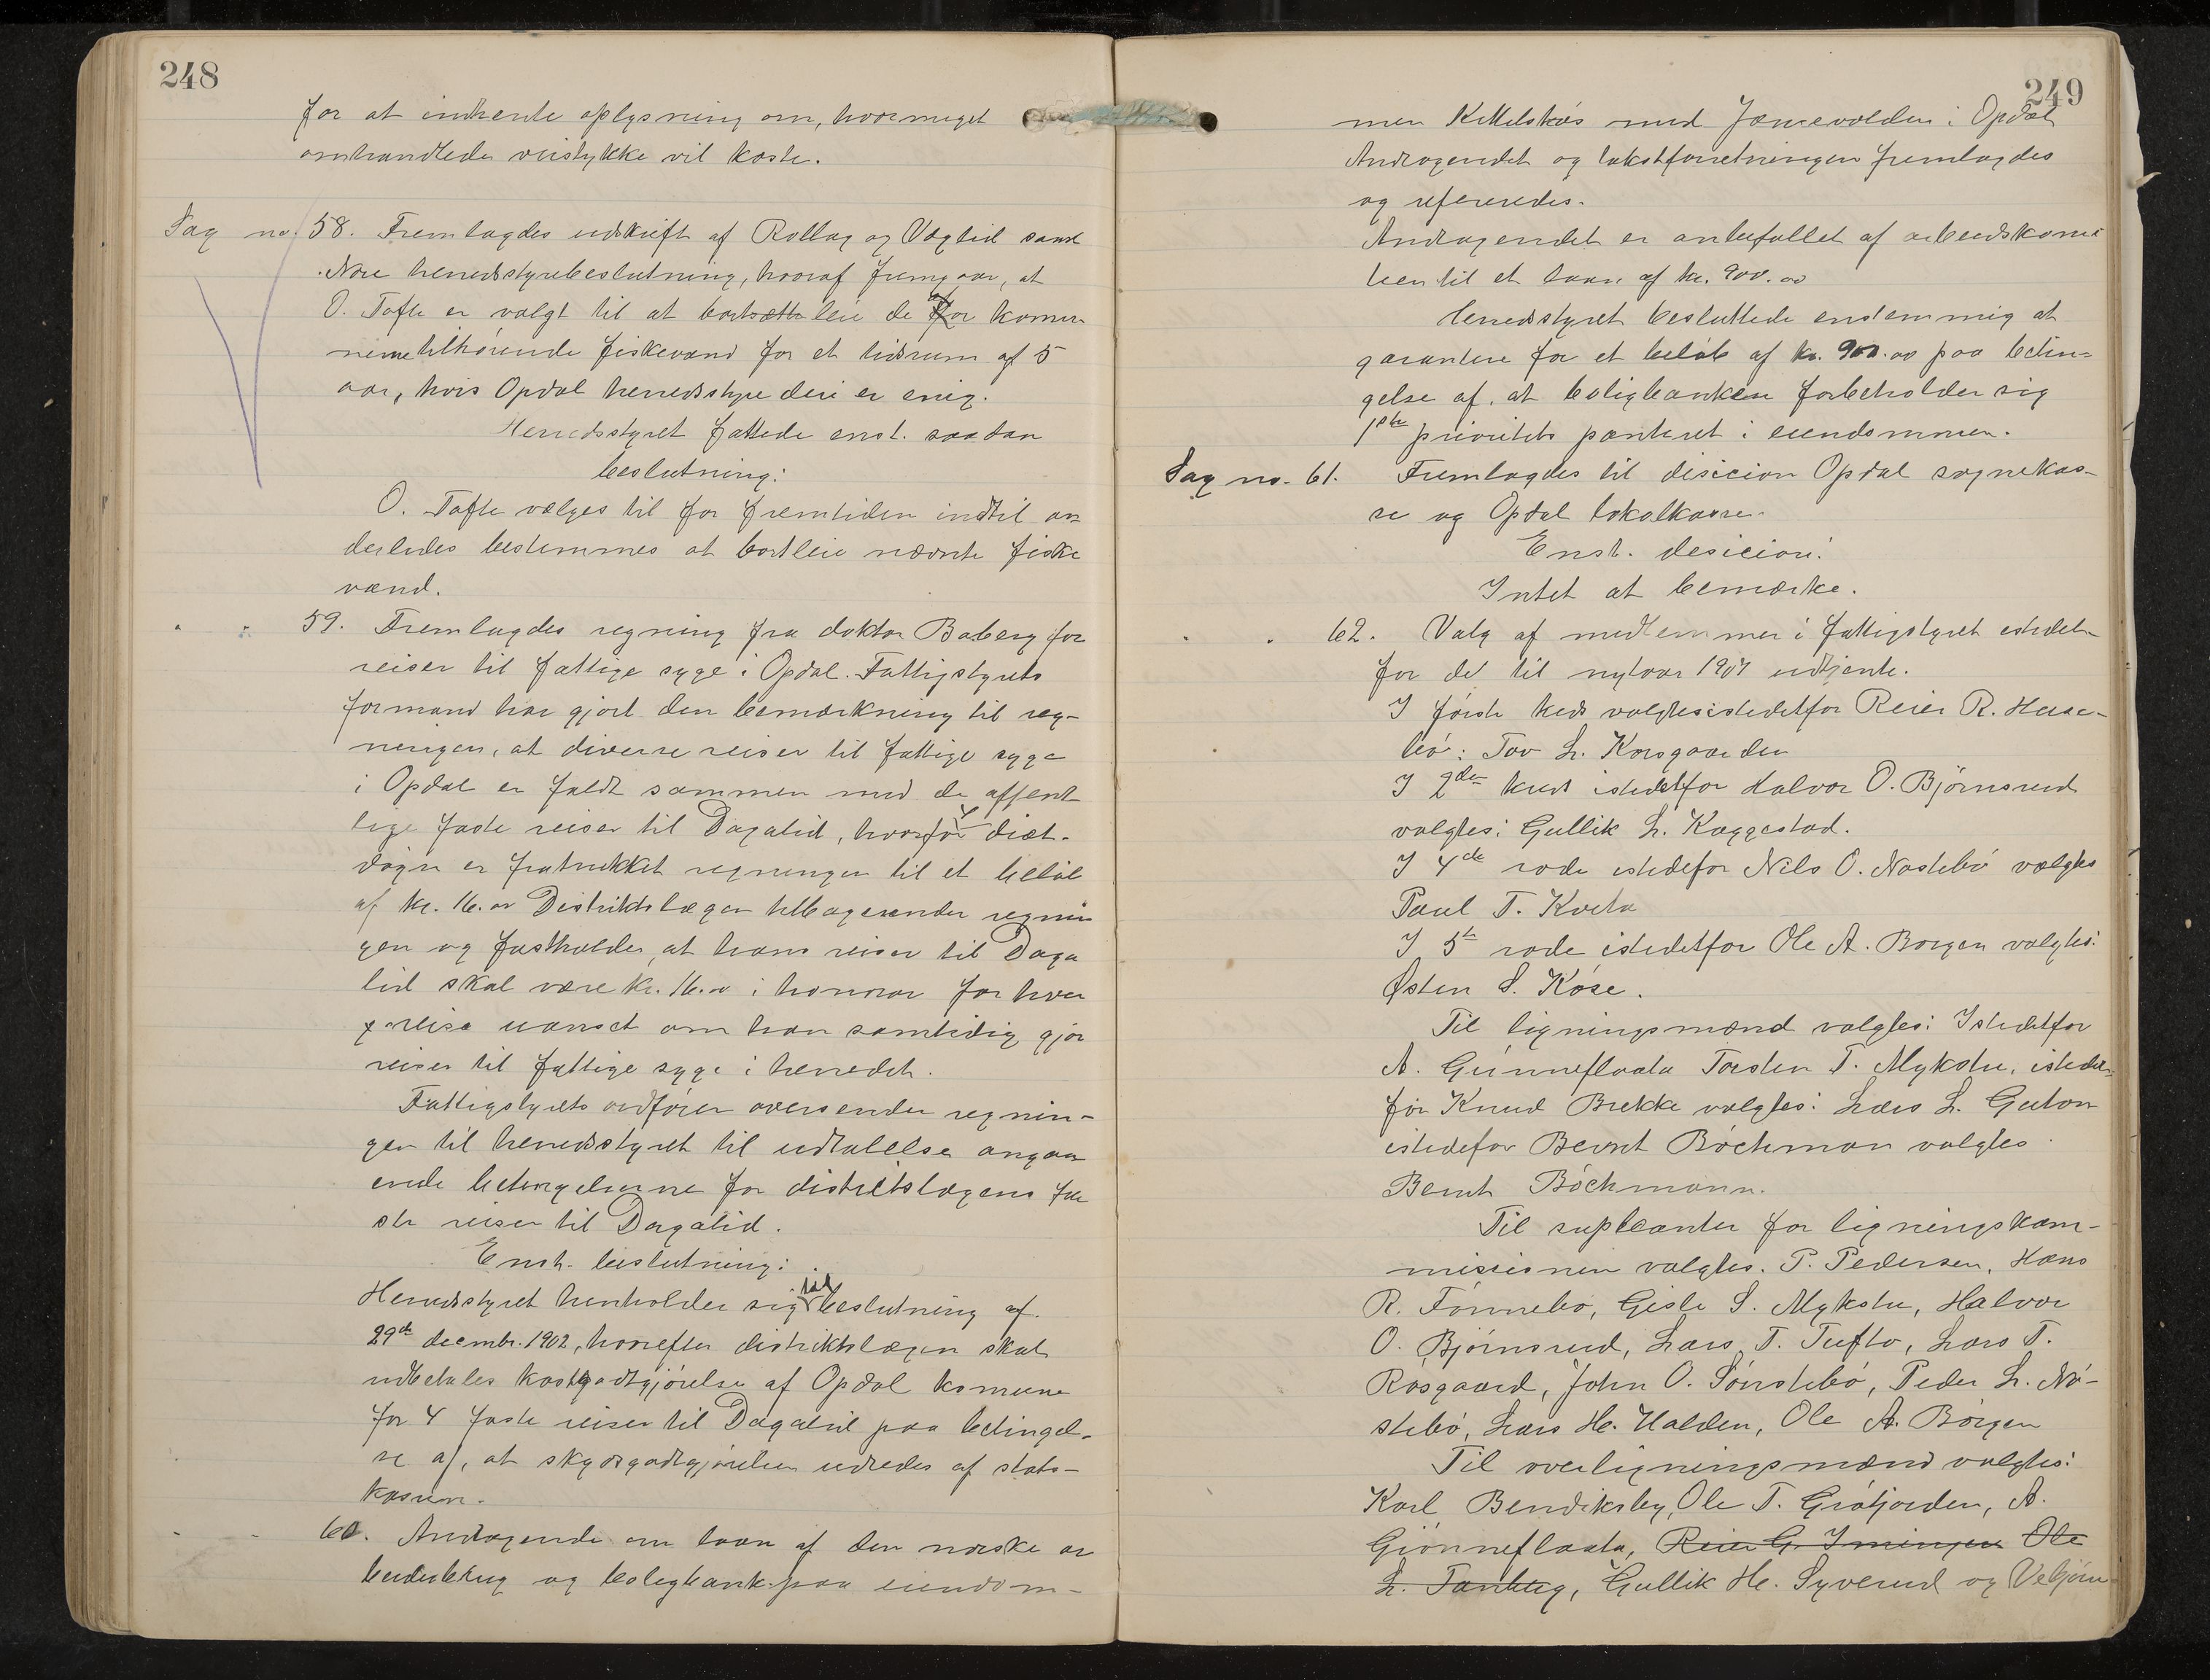 248
for at indhente oplysning om, hvormeget
omhandlede veistykke vil koste.
Sag no. 58. Fremlagdes udskrift af Rollag og Veglid samt
Nore herredsstyrebeslutning, hvoraf fremgaar, at
O. Tofte er valgt til at bortsætte leie de for kommu
nerne tilhörende fiskevand for et tidsrum af 5
aar, hvis Opdal herredsstyre deri er enig.
Herredsstyret fattede enst. saadan
beslutning:
O. Tofte vælges til for fremtiden indtil an
derledes bestemmes at bortleie nævnte fiske
vand.
" " 59. Fremlagdes regning fra doktor Baberg for
reiser til fattige syge i Opdal. Fattigstyrets
formand har gjort den bemærkning til reg-
ningen, at diverse reiser til fattige syge
i Opdal er faldt sammen med de offent
lige faste reiser til Dagalid, hvorfor diæt-
dögn er fratrukket regningen til et belöb
af kr. 16.00 Distriktslægen tilbagesender regnin
gen og fastholder, at hans reiser til Daga
lid skal være kr. 16.00 i honorar for hver
reise uanset om han samtidig gjör
reiser til fattige syge i herredet.
Fattigstyrets ordförer oversender regnin-
gen til herredsstyret til udtalelse angaa
ende betingelserne for distriktslægens fa
ste reiser til Dagalid.
Enst. beslutning:
Herredsstyret henholder sig til beslutning af
29de decembr. 1902, hvorefter distriktslægen skal
udbetales kostgodtgjörelse af Opdal komune
for 4 faste reiser til Dagalid paa betingel-
se af, at skydsgodtgjörelsen udredes af stats-
kassen.
" " 60. Andragende om laan af den norske ar
beiderbrug og boligbank paa eiendom-
249
men Kittelsaas med Jønnevolden i Opdal
Andragendet og takstforretningen fremlagdes
og refereredes.
Andragendet er anbefallet af arbeidskomi
teen til et laan af kr. 900.00
Herredsstyret besluttede enstemmig at
garantere for et belöb af kr. 900.00 paa betin-
gelse af, at boligbanken forbeholder sig
1ste prioritets panteret i eiendommen.
Sag no. 61. Fremlagdes til disicion Opdal sognekas-
se og Opdal lokalkasse.
Enst. desicion:
Intet at bemærke.
" " 62. Valg af medlemmer i fattigstyret istedet-
for de til nytaar 1904 udtjente.
I förste kreds valgtes istedetfor Reier R. Haase-
bö: Tov L. Korsgaarden
I 2den kreds istedetfor Halvor O. Björnsrud
valgtes: Gullik L. Kaggestad.
I 4de rode istedefor Nils O. Nöstebö valgtes
Paul T. Kvita
I 5te rode istedetfor Ole A. Borgen valgtes:
Østen S. Kase.
Til ligningsmænd valgtes: Istedetfor
A. Günneflaata Torsten T. Mykstu, istedet-
for Knud Brekke valgtes: Lars L. Guton
istedefor Bernt Böchman valgtes
Bernt Böchmann.
Til supleanter for ligningskom-
missionen valgtes. P. Pedersen, Hans
R. Fönnebö, Gisle S. Mykstu, Halvor
O. Björnsrud, Lars T. Tufto, Lars T.
Rosgaard, John O. Sönstebö, Peder L. Nö-
stebö, Lars H. Halden, Ole A. Börgen
Til overligningsmænd valgtes:
Karl Bendiksby, Ole T. Grötjorden, A.
Giönneflaata, Reier G. Imingen Ole
L. Tanberg, Gullik H. Syverud og Vebjörn